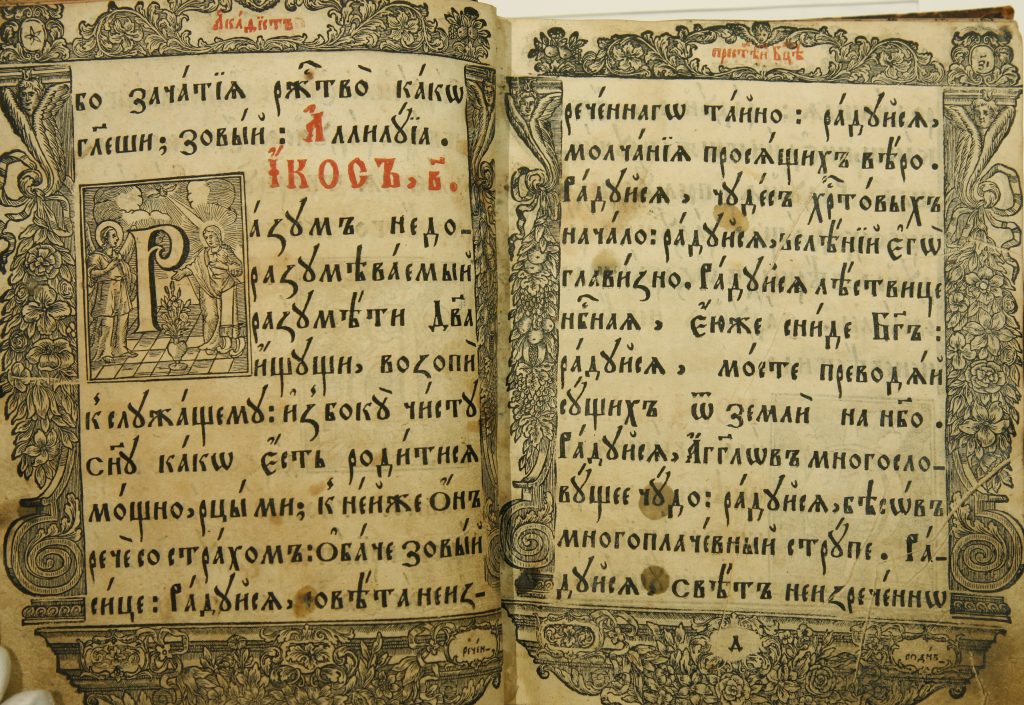 Акаѳістъ
бо зача́тїѧ рж҃тво̀ ка́кѡ
гл҃еши; зовы́й : Аллилꙋ́їа .
І҆́КОСЪ, в҃.
Ра́зꙋмъ недо-
разꙋмѣва́емый
разꙋмѣ́ти Дв҃а
и҆́щꙋщи, возопѝ
к̾ слꙋжа́щемꙋ : и҆з̾ бокꙋ̀ чи́стꙋ
сн҃ꙋ ка́кѡ є҆́сть роди́тисѧ
мо́щно, рцы́ ми; к̾ не́йже Ѻ҆́нъ
речѐ со стра́хомъ : Ѻ҆ба́че зовы́й
си́це : Ра́дꙋйсѧ, совѣ́та неиз-
рєчєн-
прест҃ѣ́й Бц҃ѣ
рече́ннагѡ та́йно : ра́дꙋйсѧ,
молча́нїѧ просѧ́щихъ вѣ́ро .
Ра́дꙋйсѧ, чꙋде́съ хрт҃о́выхъ
нача́ло : ра́дꙋйсѧ, велѣ́нїй є҆гѡ̀
глави́зно . Ра́дꙋйсѧ лѣ́ствице
нб҃наѧ, є҆́юже сни́де Бг҃ъ :
ра́дꙋйсѧ, мо́сте преводѧ́й
сꙋ́щихъ ѿ землѝ на нб҃о .
Ра́дꙋйсѧ, А҆́гг҃лѡвъ многосло-
вꙋ́щее чꙋ́до : ра́дꙋйсѧ, бѣсѡ́въ
многоплаче́вный стрꙋ́пе . Ра́-
дꙋйсѧ, свѣ́тъ неизрече́ннѡ
Д